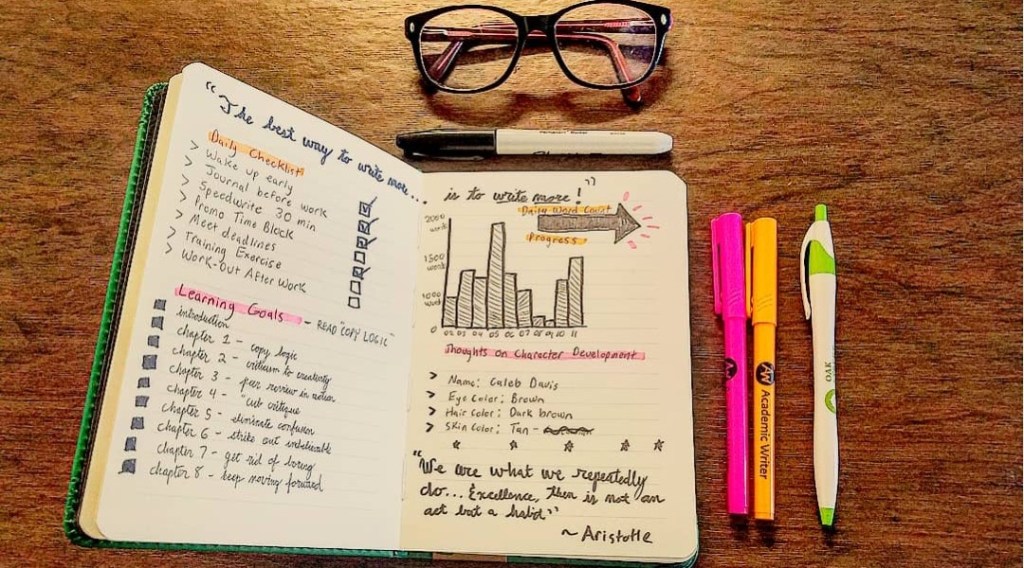 "The best way to write more...
Daily Checklist
> Wake up early
> Journal before work
> Speedwrite 30 min
> Promo Time Block
> Meet deadlines
> Training Exercise
> Work-Out After Work
Learning Goals - READ "COPY LOGIC"
introduction
chapter 1 - copy logic
chapter 2 - criticism to creativity
chapter 3 - peer review in action
chapter 4 - "cub critique
chapter 5 - eliminate confusion
chapter 6 - strike out unbelievable
chapter 7 - get rid of boring
chapter 8 - keep moving forward
.. is to write more!"
Daily Word Count
Progress
2000 words
1500 words
1000 words
02 03 04 05 06 07 08 09 10 11
Thoughts on Character Development
> Name: Caleb Davis
> Eye Color: Brown
> Hair Color: Dark brown
> Skin Color: Tan -
"We are what we repeatedly
do... Excellence, then is not an
act but a habit"
~ Aristotle
AW
AW Academic Writer
OAK